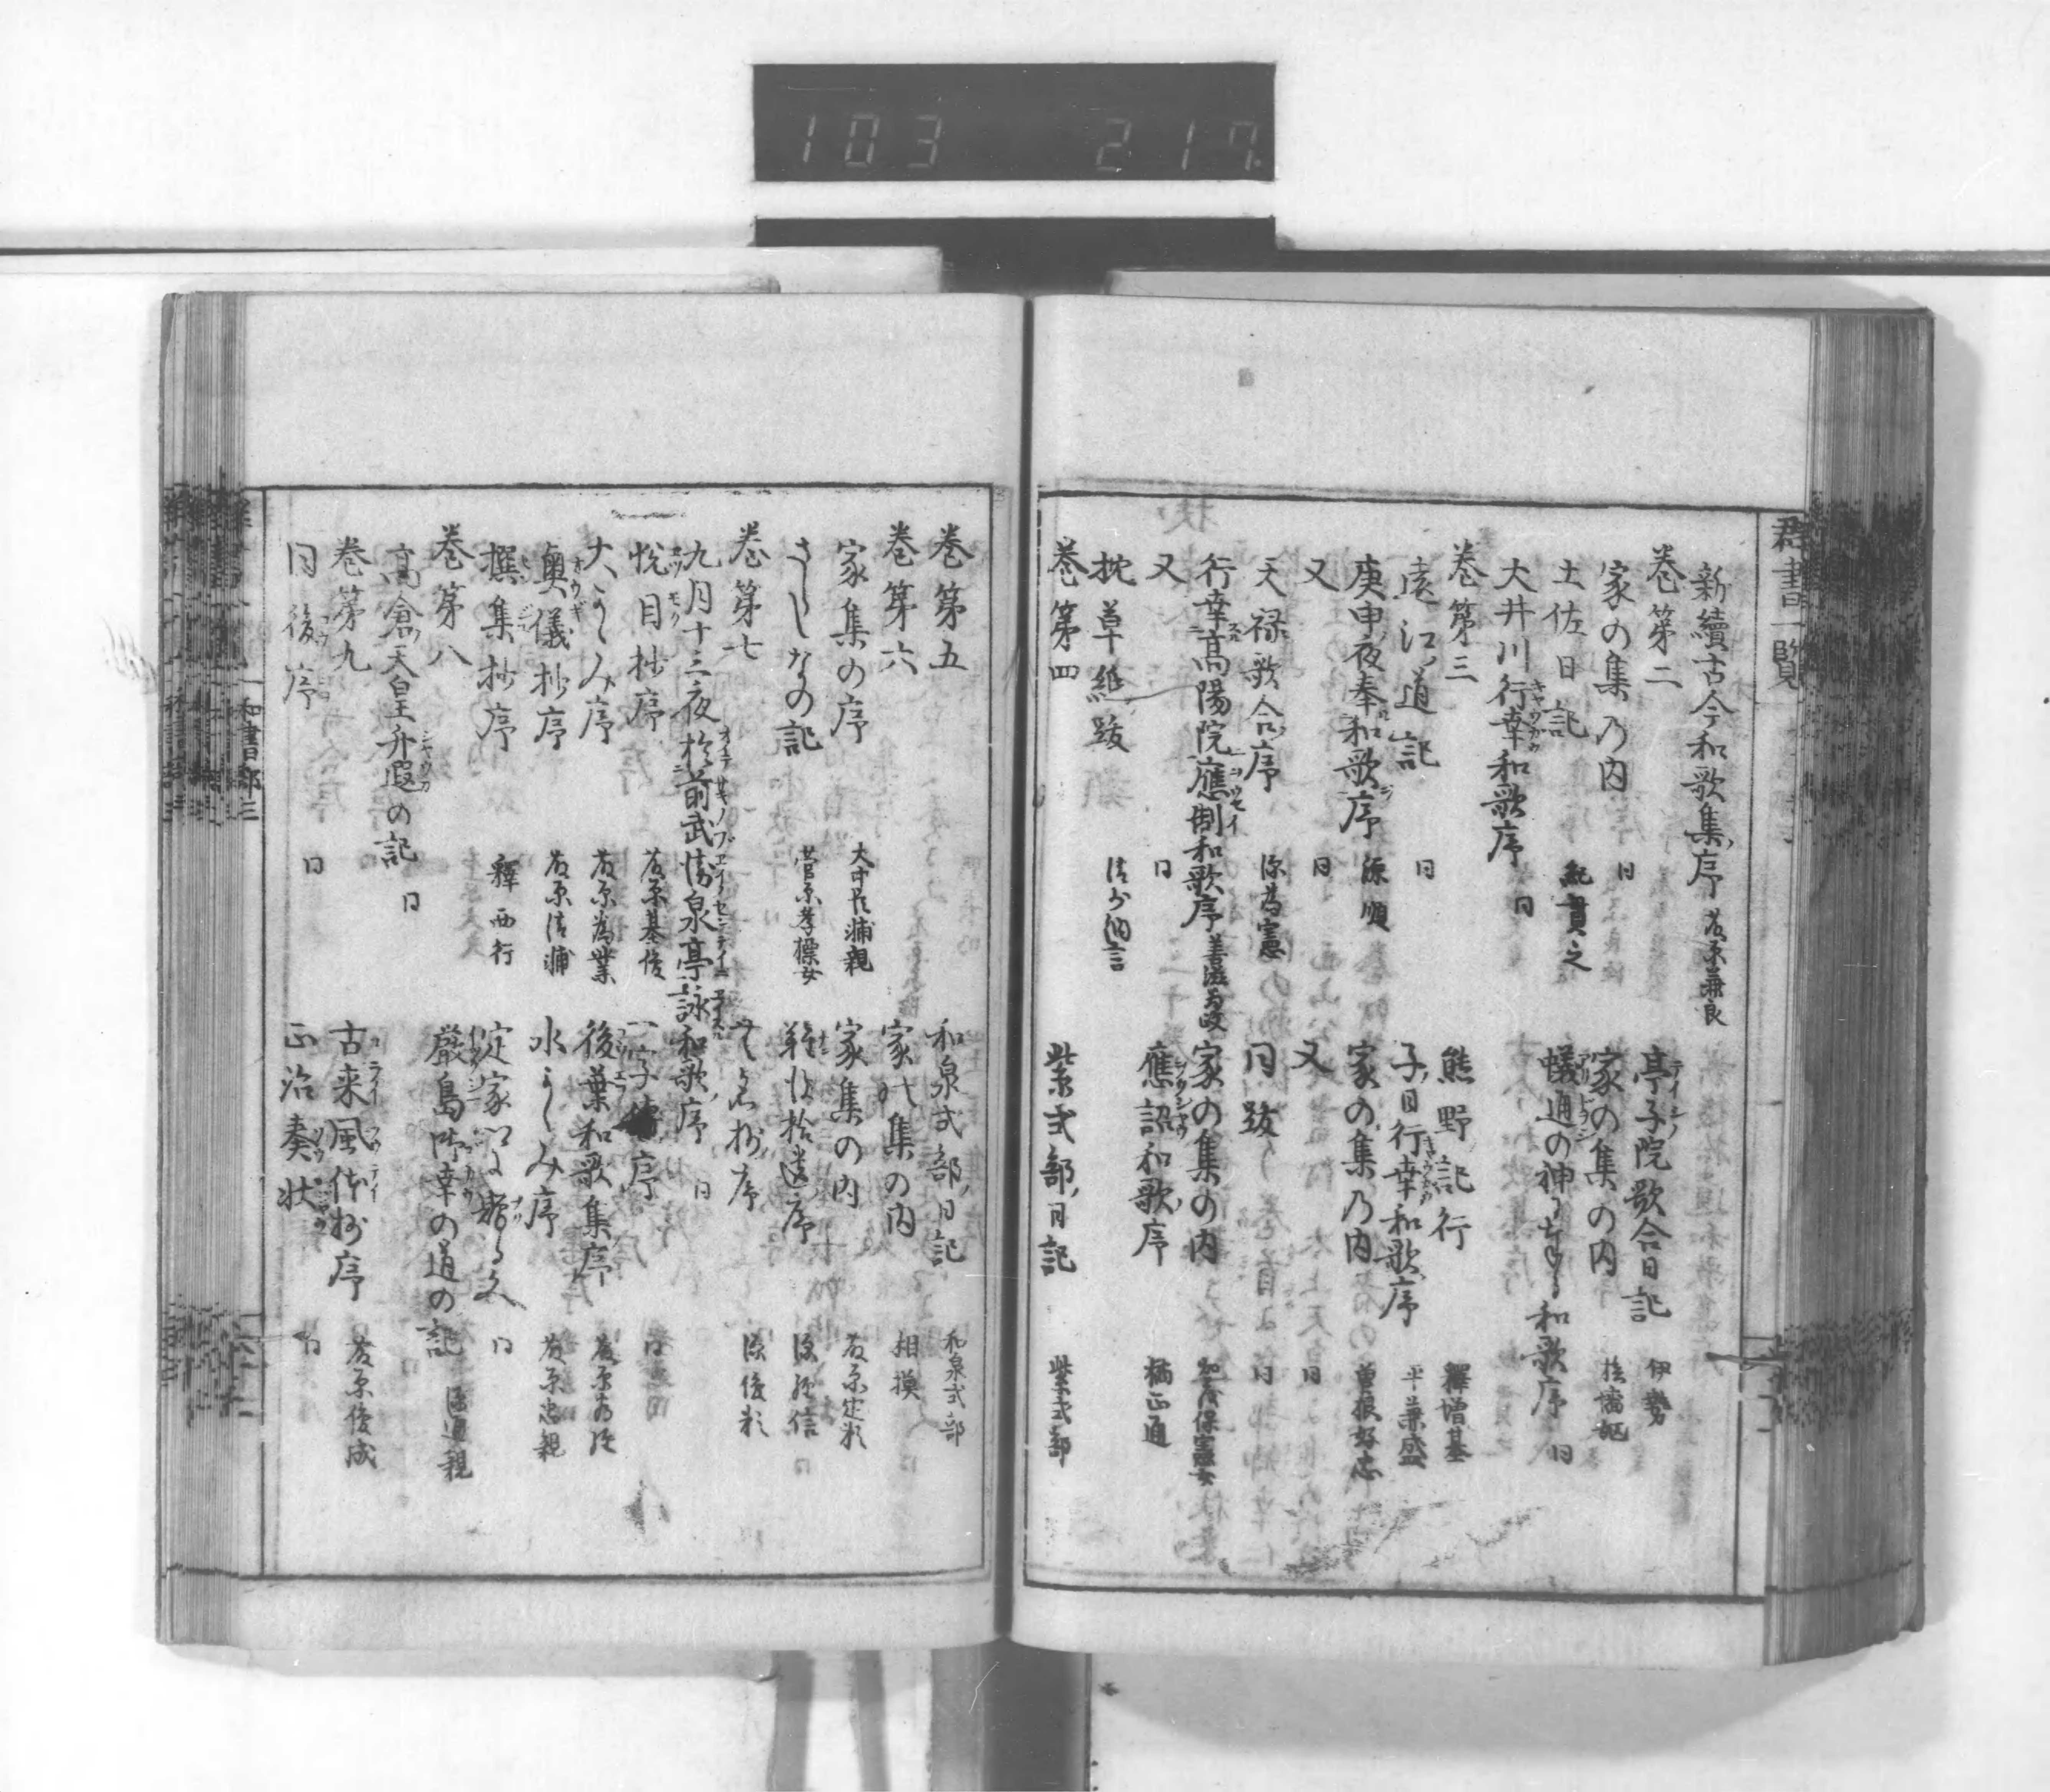 103 217
群書一覽
新續古今和歌集序 藤原兼良
巻第二
亭子院歌合日記 伊勢
家の集乃内 同
家の集の内 桧墻嫗
土佐日記 紀貫之
蟻通の神に奉る和歌序 同
大井川行幸和歌序 同
巻第三
熊野記行 釋増基
遠江道記 同
子日行幸和歌序 平兼盛
庚申夜奉和歌序 源順
家の集乃内 曽根好忠
又 同
又 同
天禄歌合序 源為憲
同跋 同
行幸高陽院應制和歌序 善滋為政
家の集の内 加茂保憲女
又 同
應詔和歌序 橘正通
枕草紙跋 清少納言
巻第四
紫式部日記 紫式部
巻第五
和泉式部日記 和泉式部
巻第六
家の集の内 相摸
家集の序 大中臣輔親
家集の内 藤原定頼
さらしなの記 菅原孝標女
難後拾遺序 源経信
巻第七
序 源俊頼
九月十三夜於前武衛泉亭詠和歌序 同
悦目抄序 藤原基俊
一字抄序 同
大かゝみ序 藤原為業
後葉和歌集序 藤原為経
奥儀抄序 藤原清輔
水かゝみ序 藤原忠親
撰集抄序 釋西行
定家に贈る文 同
巻第八
嚴島御幸の道の記 源通親
高倉天皇升遐の記 同
巻第九
古来風体抄序 藤原俊成
同後序 同
正治奏状 同
和書部三